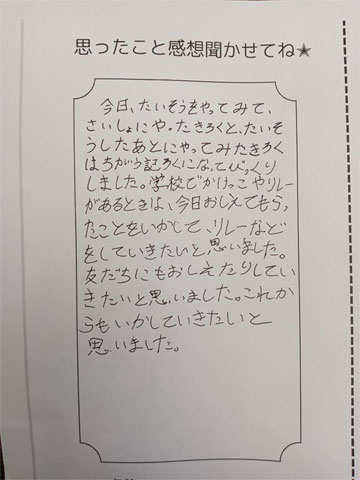 思ったこと感想聞かせてね★
今日、たいそうをやってみて、
さいしょにや。たきろくと、たいそ
うしたあとにやってみたきろく
はちがう記ろくになってびっくり
しました。学校でかけっこやリレー
があるときは、今日おしえてもらっ
たことをいかして、リレーなど
をしていきたいと思いました。
友だちにもおしえたりしてい
きたいと思いました。これか
らもいかしていきたいと
思いました。